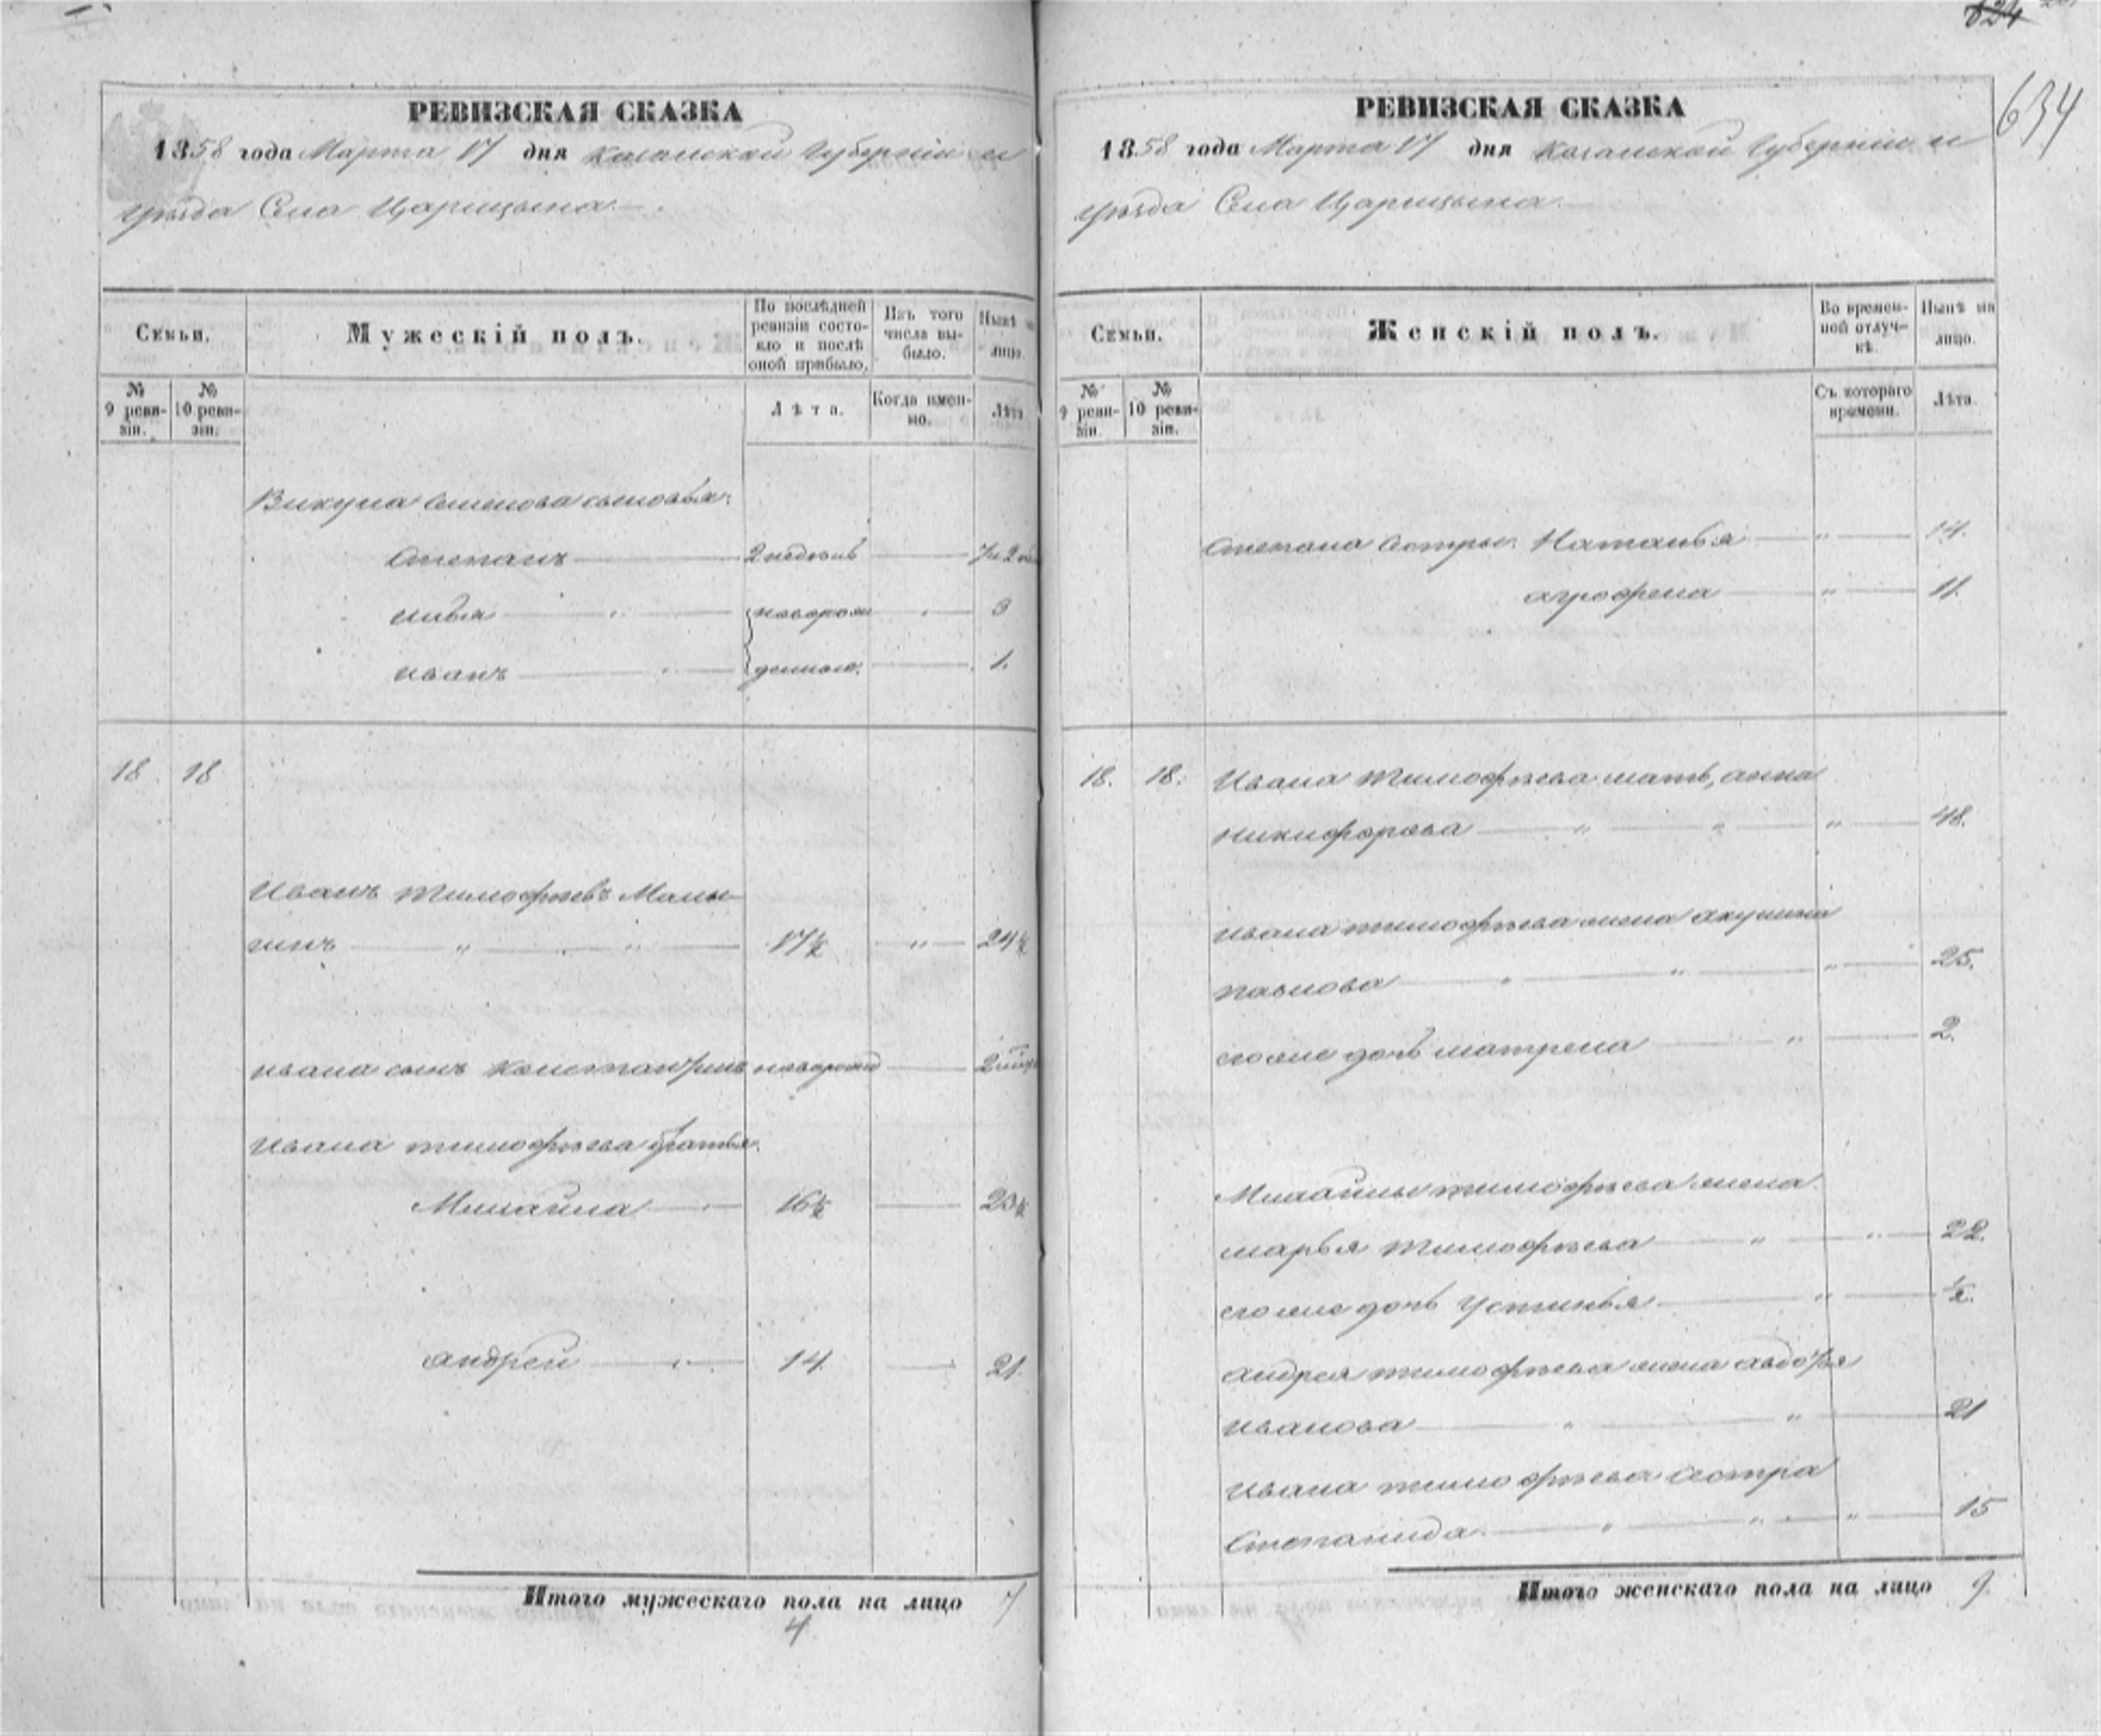 624
634
РЕВИЗСКАЯ СКАЗКА
1858 года Марта 17 дня Казанской Губерніи и
уѣзда Села Царицына.
Семьи.
Мужескій полъ.
По послѣдней ревизіи состояло и послѣ оной прибыло.
Изъ того числа выбыло.
Нынѣ на лицо.
№ 9 ревизіи.
№ 10 ревизіи.
Лѣта.
Когда именно.
Лѣта
Викула Семенова сыновья:
Степанъ 2 недѣль
Илья новорож 3
Иванъ денные. 1.
18 18
Иванъ Тимофѣевъ Малы-
гинъ " " 17½ " 24½
Ивана сынъ Константинъ новорожд
Ивана Тимофѣева братья.
Михайла 16½ 23½
Андрей 14 21.
Итого мужескаго пола на лицо 7
4
РЕВИЗСКАЯ СКАЗКА
1858 года Марта 17 дня Казанской Губерніи и
уѣзда Села Царицына.
Семьи.
Женскій полъ.
Во временной отлучкѣ.
Нынѣ на лицо.
№ 9 ревизіи.
№ 10 ревизіи.
Съ котораго времени.
Лѣта.
Степана сестры: Наталья " 14.
Агрофена " 11.
18. 18. Ивана Тимофѣева мать, Анна
Никифорова " " " 48.
Ивана Тимофѣева жена Акулина
Павлова " " " 25.
его же дочь Матрена " 2.
Михайлы Тимофѣева жена
Марья Тимофѣева " " 22.
его же дочь Устинья " ½.
Андрея Тимофѣева жена Авдотья
Иванова " " 21
Ивана Тимофѣева сестра
Степанида " " " 15
Итого женскаго пола на лицо 9.